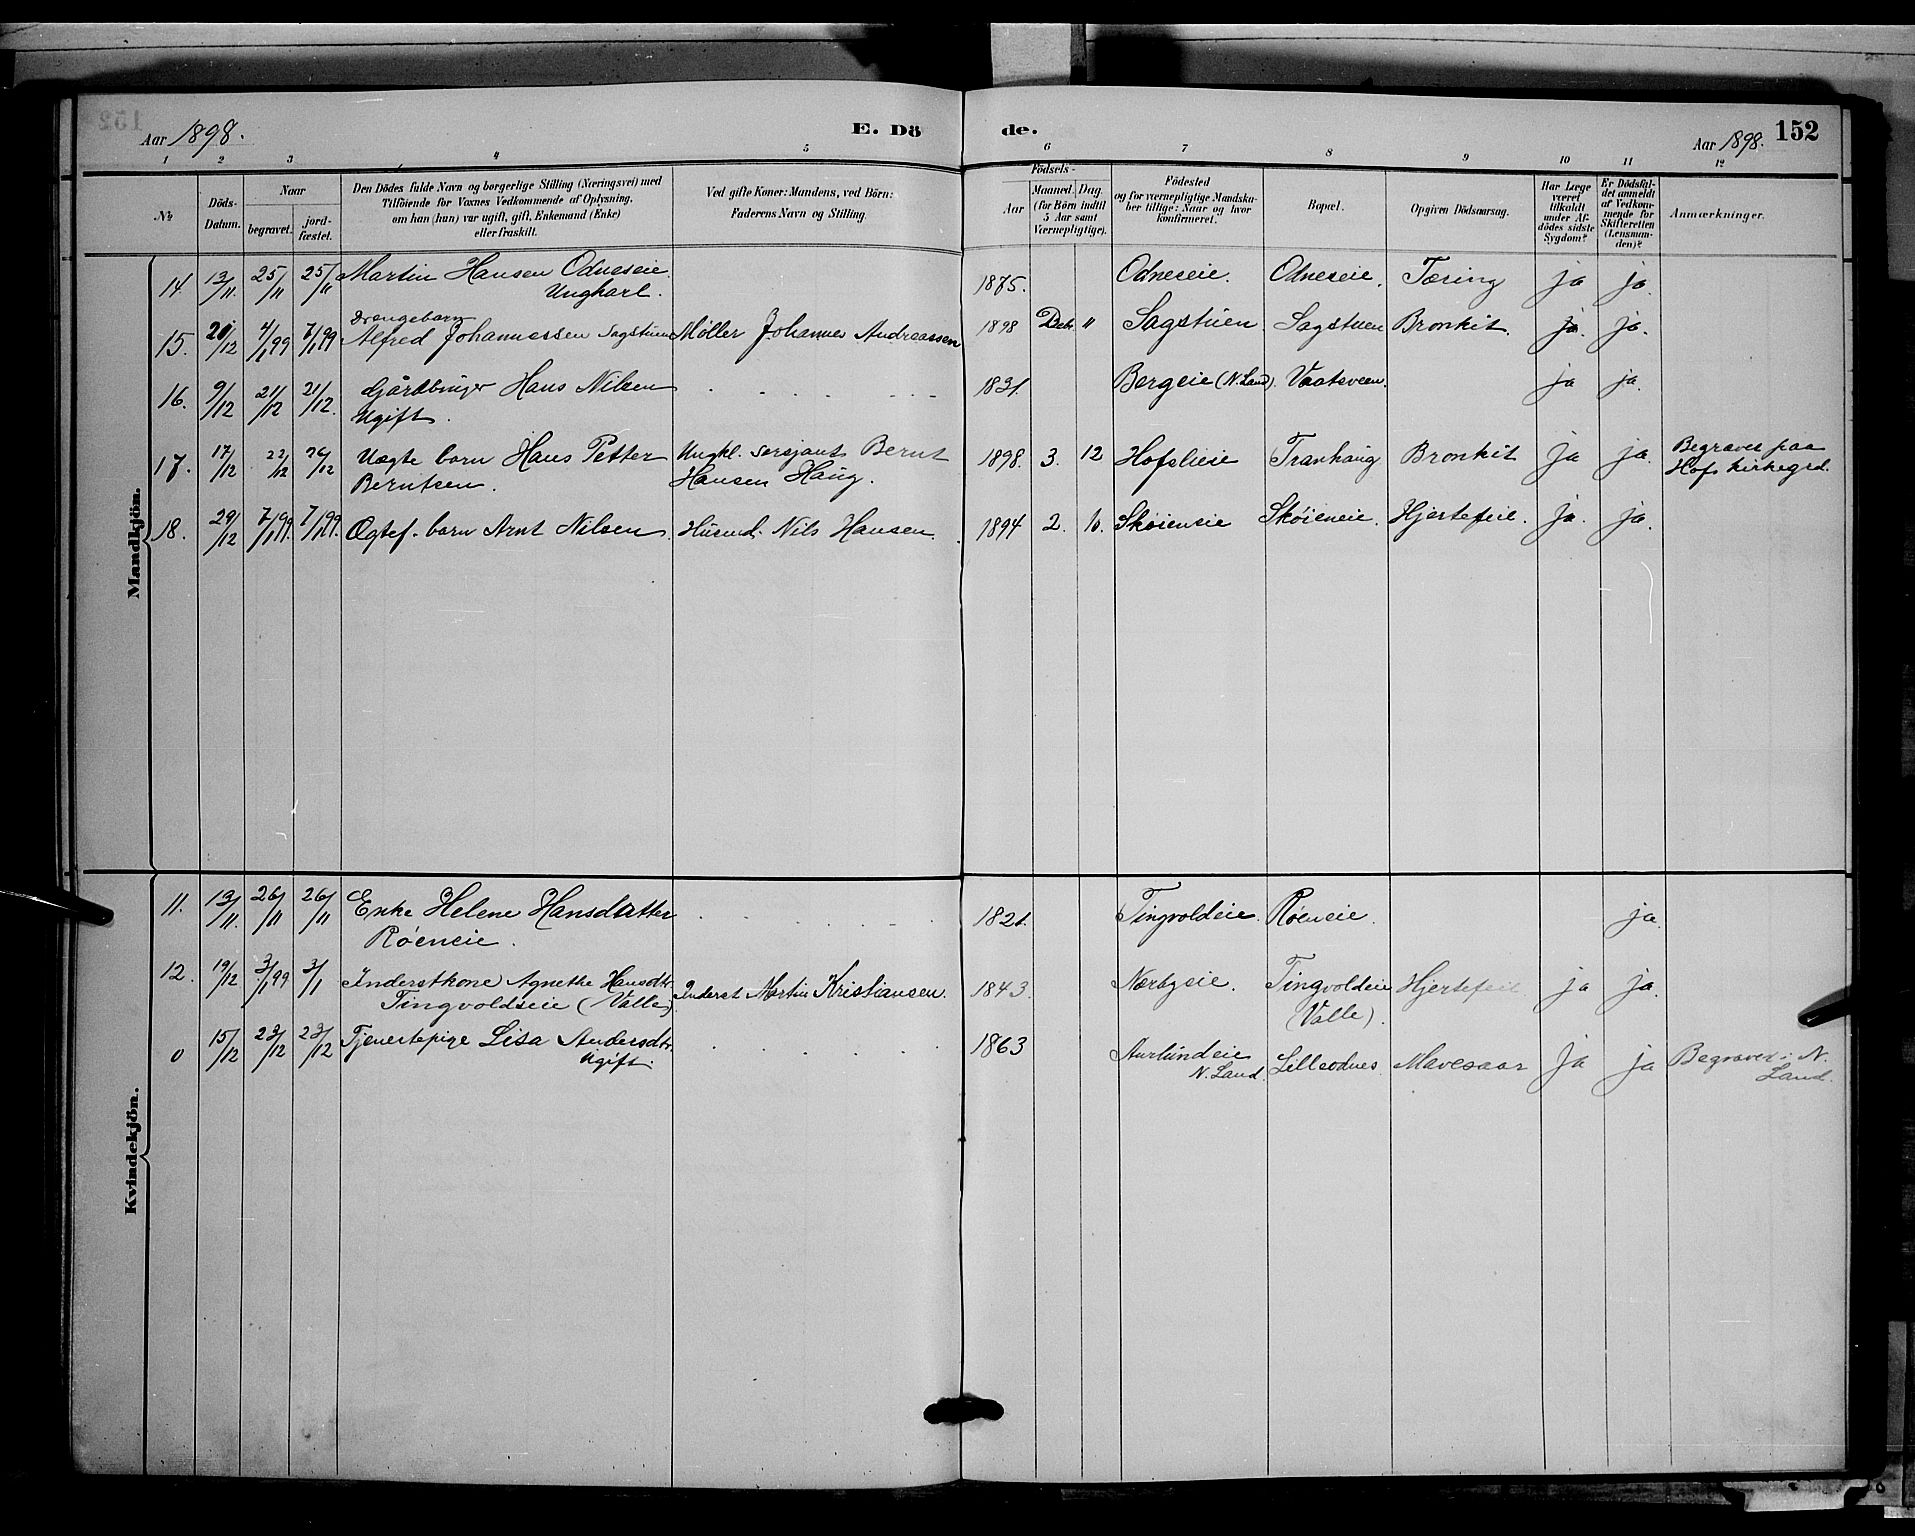 152
Aar 1898.
E. Dö
de.
Aar 1898.
152
1 2 3 4 5 6 7 8 9 10 11 12
№
Döds-
Datum.
Naar
begravet.
jord-
fæstet.
Den Dödes fulde Navn og borgerlige Stilling (Næringsvei) med
Tilföiende for Voxnes Vedkommende af Oplysning,
om han (hun) var ugift, gift, Enkemand (Enke)
eller fraskilt.
Ved gifte Koner: Mandens, ved Börn:
Faderens Navn og Stilling.
Födsels-
Aar
Maaned. Dag.
(for Börn indtil
5 Aar samt
Værnepligtige).
Födested
og for værnepligtige Mandska-
ber tillige: Naar og hvor
konfirmeret.
Bopæl.
Opgiven Dödsaarsag.
Har Læge
været
tilkaldt
under Af-
dödes sidste
Sygdom?
Er Dödsfal-
det anmeldt
af Vedkom-
mende for
Skifteretten
(Lensman-
den)?
Anmærkninger.
Mandkjön.
14. 13/11. 25/11 25/11 Martin Hansen Odneseie. 1875. Odneseie. Odneseie. Tæring ja ja.
Ungkarl.
Drengebarn
15. 21/12 4/1 99 7/1 99 Alfred Johannessen Sagstuen Møller Johannes Andreassen 1898 Debr. " Sagstuen. Sagstuen Bronkit. ja. ja.
16. 9/12 21/12 21/12. Gårdbruger Hans Nilsen 1831. Bergeie (N. Land). Vaatsveen. ja ja.
Ugift.
17. 17/12 22/12 26/12 Uægte barn Hans Petter Ungkl. sersjant Bernt 1898. 3. 12 Hofslieie Tranhaug Bronkit ja ja. Begraves paa
Berntsen. Hansen Haug. Hofs kirkegrd.
18. 29/12 7/1 99. 7/1 99. Ægtef. barn Arnt Nilsen. Husmd. Nils Hansen. 1894 2. 10. Skøieneie Skøieneie. Hjertefeil. ja. ja.
Kvindekjön.
11. 13/11. 26/11 26/11 Enke Helene Hansdatter 1821. Tingvoldeie. Røeneie. ja.
Røeneie.
12. 19/12 3/1 99 3/1 Inderstkone Agnethe Hansdtr. Inderst Martin Kristiansen. 1843. Nærbyeie. Tingvoldeie Hjertefeil ja ja.
Tingvoldseie (Valle). (Valle).
0 15/12 23/12 23/12 Tjenestepige Lisa Andersdtr. 1863 Aurlundeie Lilleodnes Mavesaar ja ja Begraves i N.
Ugift. N. Land. Land.